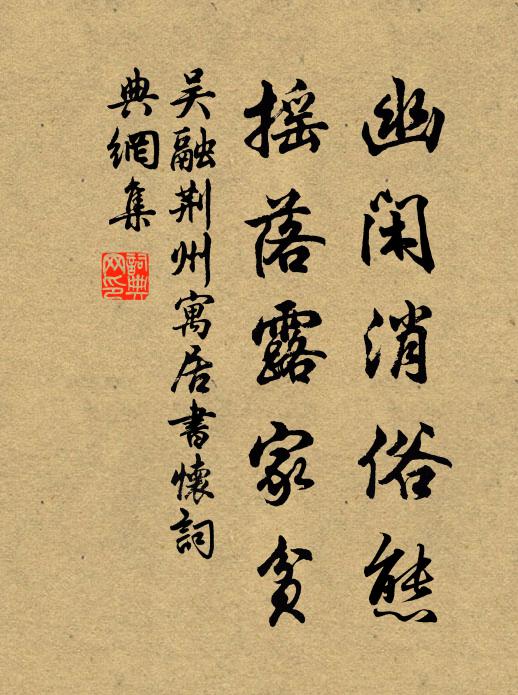 幽閑消俗態
摇落露家貧
吴融荆州寓居書懷詞
典網集
詞典
网印